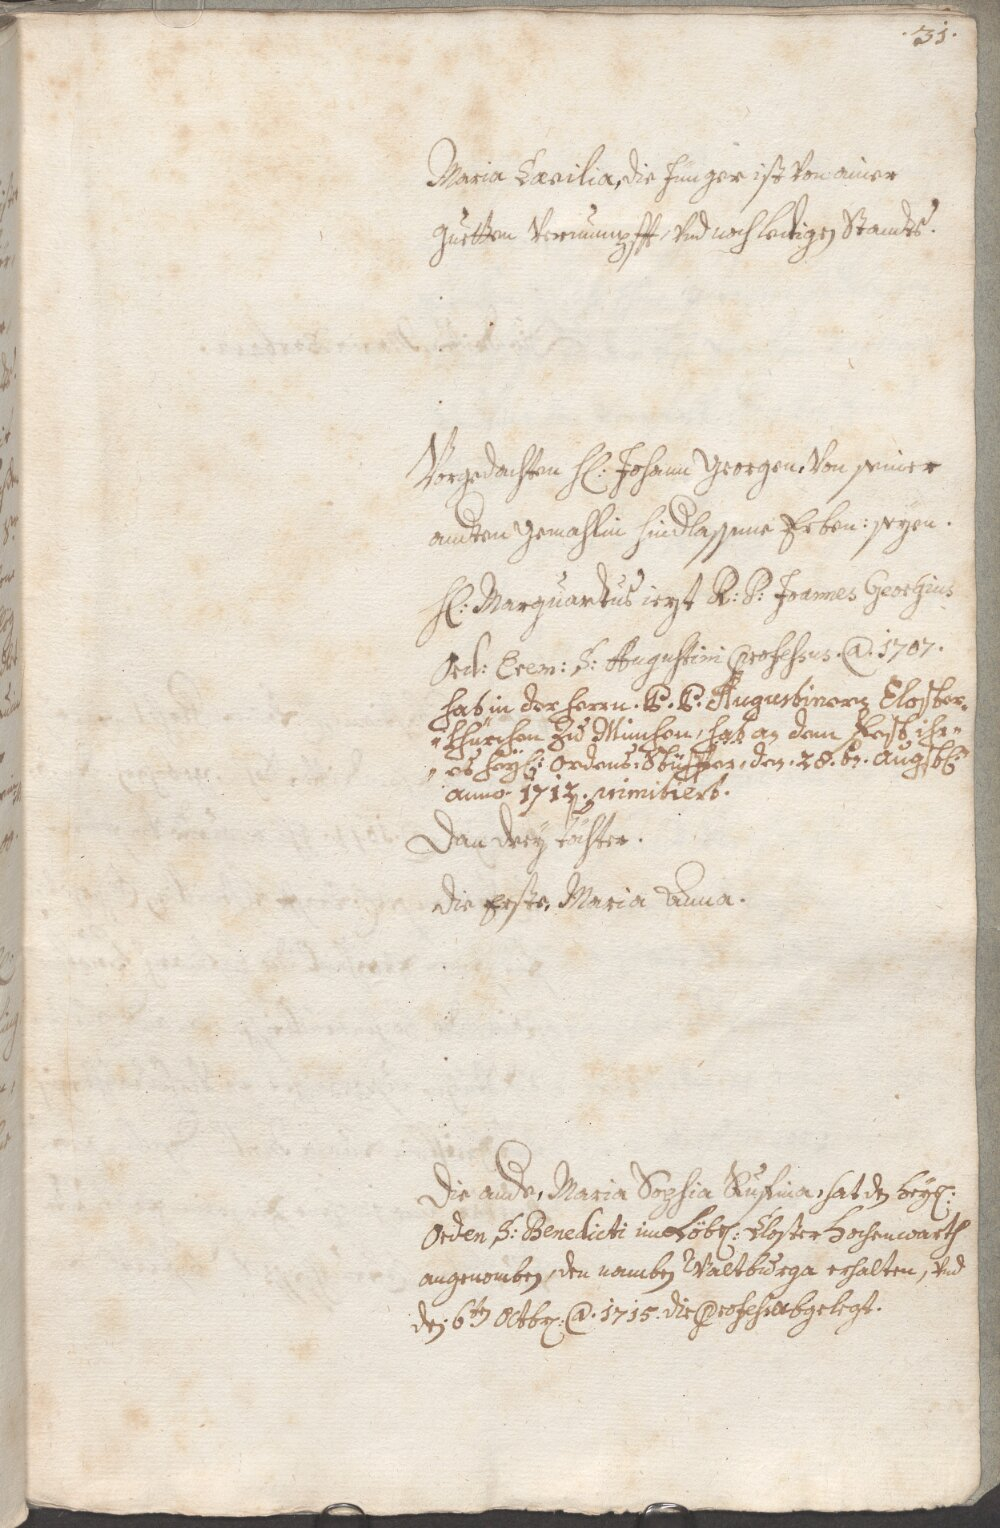 ·31·
Maria Cæcilia, die Jünger ist von ainer
guetten Vernunpfft, vnd noch ledigen Standts.
Vorgedachten H: Johann Georgen, Von seiner
andten Gemahlin hindlassene Erben: seyen.
H: Marquardus iezt R: P: Joannes Georgius
Ord: Erem: S: Augustini Professus. @. 1707.
hat in der Herrn. P. P. Augustinern Closter-
-Khürchen zu Münchn, hat an dem Fest ihr-
-es heyl: Ordens: Stüffter, den. 28. tn. Augstl:
anno 1712. primitiert.
Dan drey Töchter.
die Erste, Maria Anna.
Die ande, Maria Sophia Ruffina, hat den heyl:
Orden S: Benedicti im Löbl: Closter Hochenwarth
angenomben, den namben Waltburga erhalten, vnd
den 6ten Octbr: @. 1715. die Profess abgelegt.